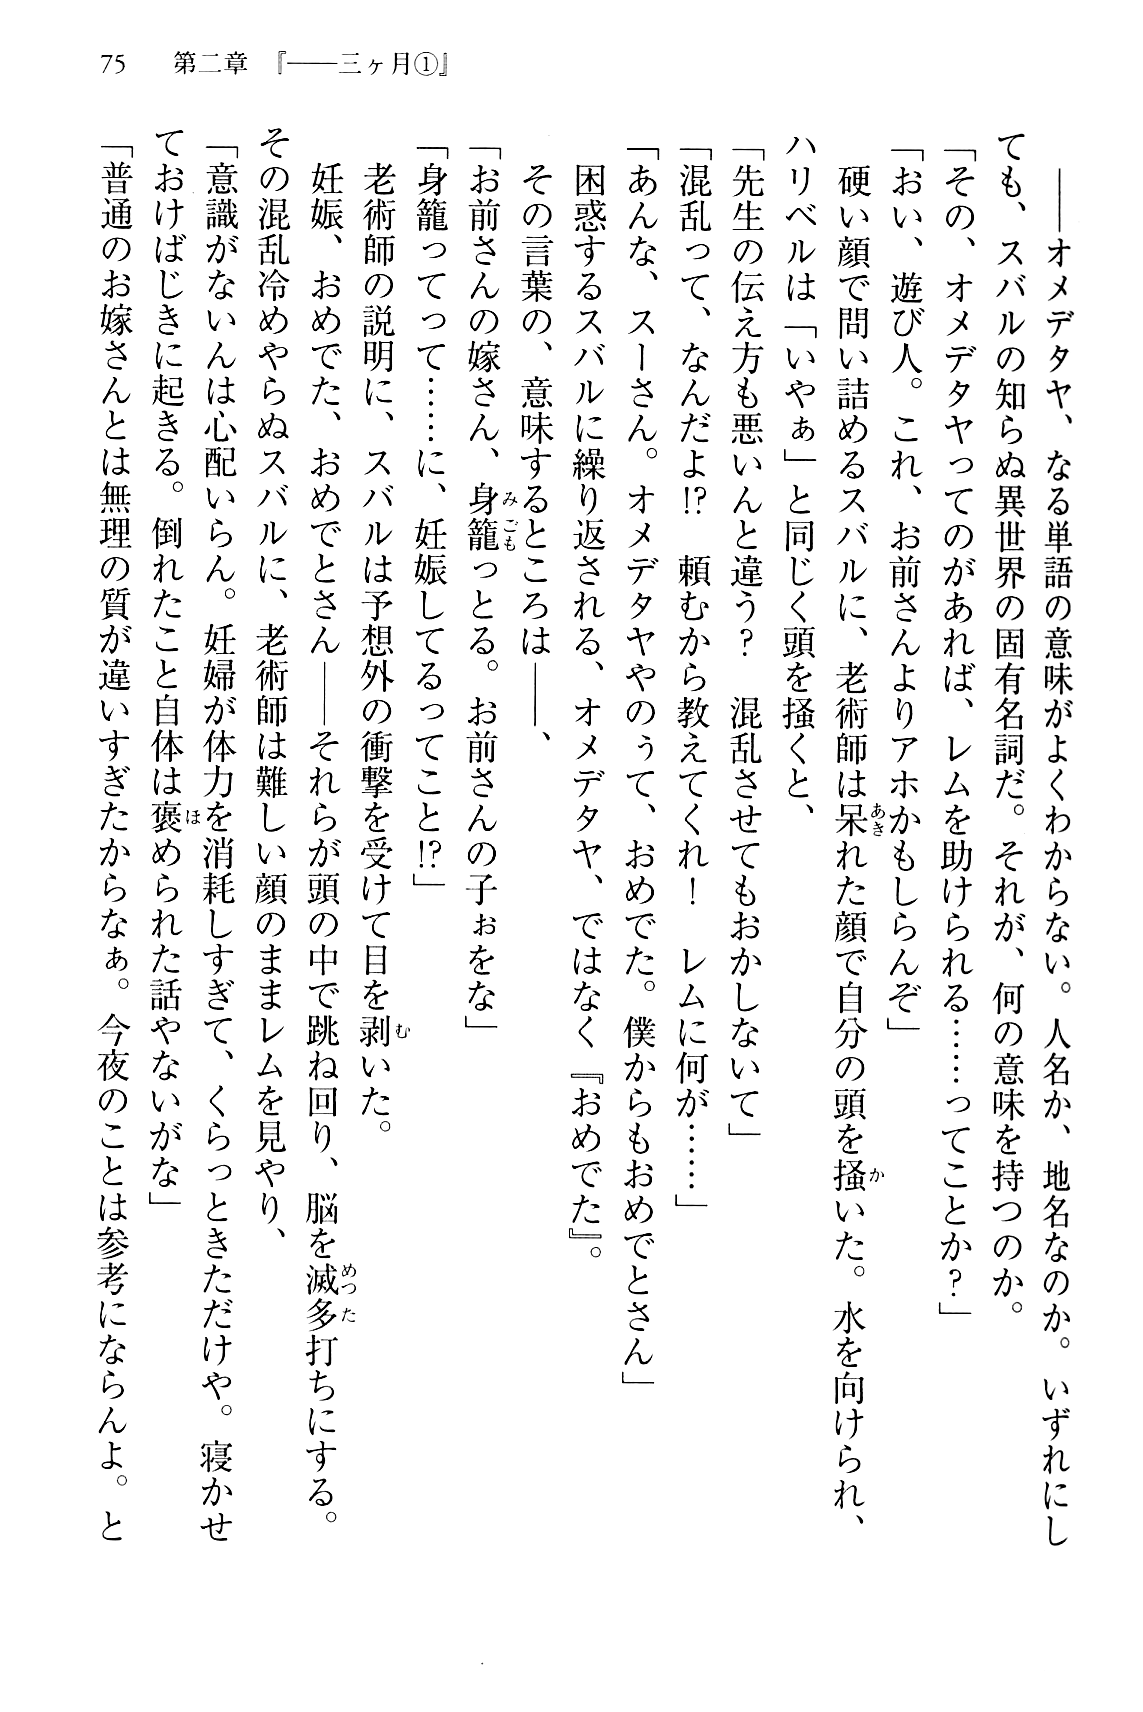 75　第二章　『――三ヶ月①』
――オメデタヤ、なる単語の意味がよくわからない。人名か、地名なのか。いずれにし
ても、スバルの知らぬ異世界の固有名詞だ。それが、何の意味を持つのか。
「その、オメデタヤってのがあれば、レムを助けられる……ってことか？」
「おい、遊び人。これ、お前さんよりアホかもしらんぞ」
硬い顔で問い詰めるスバルに、老術師は呆れた顔で自分の頭を掻いた。水を向けられ、
ハリベルは「いやぁ」と同じく頭を掻くと、
「先生の伝え方も悪いんと違う？　混乱させてもおかしないて」
「混乱って、なんだよ!?　頼むから教えてくれ！　レムに何が……」
「あんな、スーさん。オメデタヤやのぅて、おめでた。僕からもおめでとさん」
困惑するスバルに繰り返される、オメデタヤ、ではなく『おめでた』。
その言葉の、意味するところは――、
「お前さんの嫁さん、身籠っとる。お前さんの子ぉをな」
「身籠ってって……に、妊娠してるってこと!?」
老術師の説明に、スバルは予想外の衝撃を受けて目を剥いた。
妊娠、おめでた、おめでとさん――それらが頭の中で跳ね回り、脳を滅多打ちにする。
その混乱冷めやらぬスバルに、老術師は難しい顔のままレムを見やり、
「意識がないんは心配いらん。妊婦が体力を消耗しすぎて、くらっときただけや。寝かせ
ておけばじきに起きる。倒れたこと自体は褒められた話やないがな」
「普通のお嫁さんとは無理の質が違いすぎたからなぁ。今夜のことは参考にならんよ。と